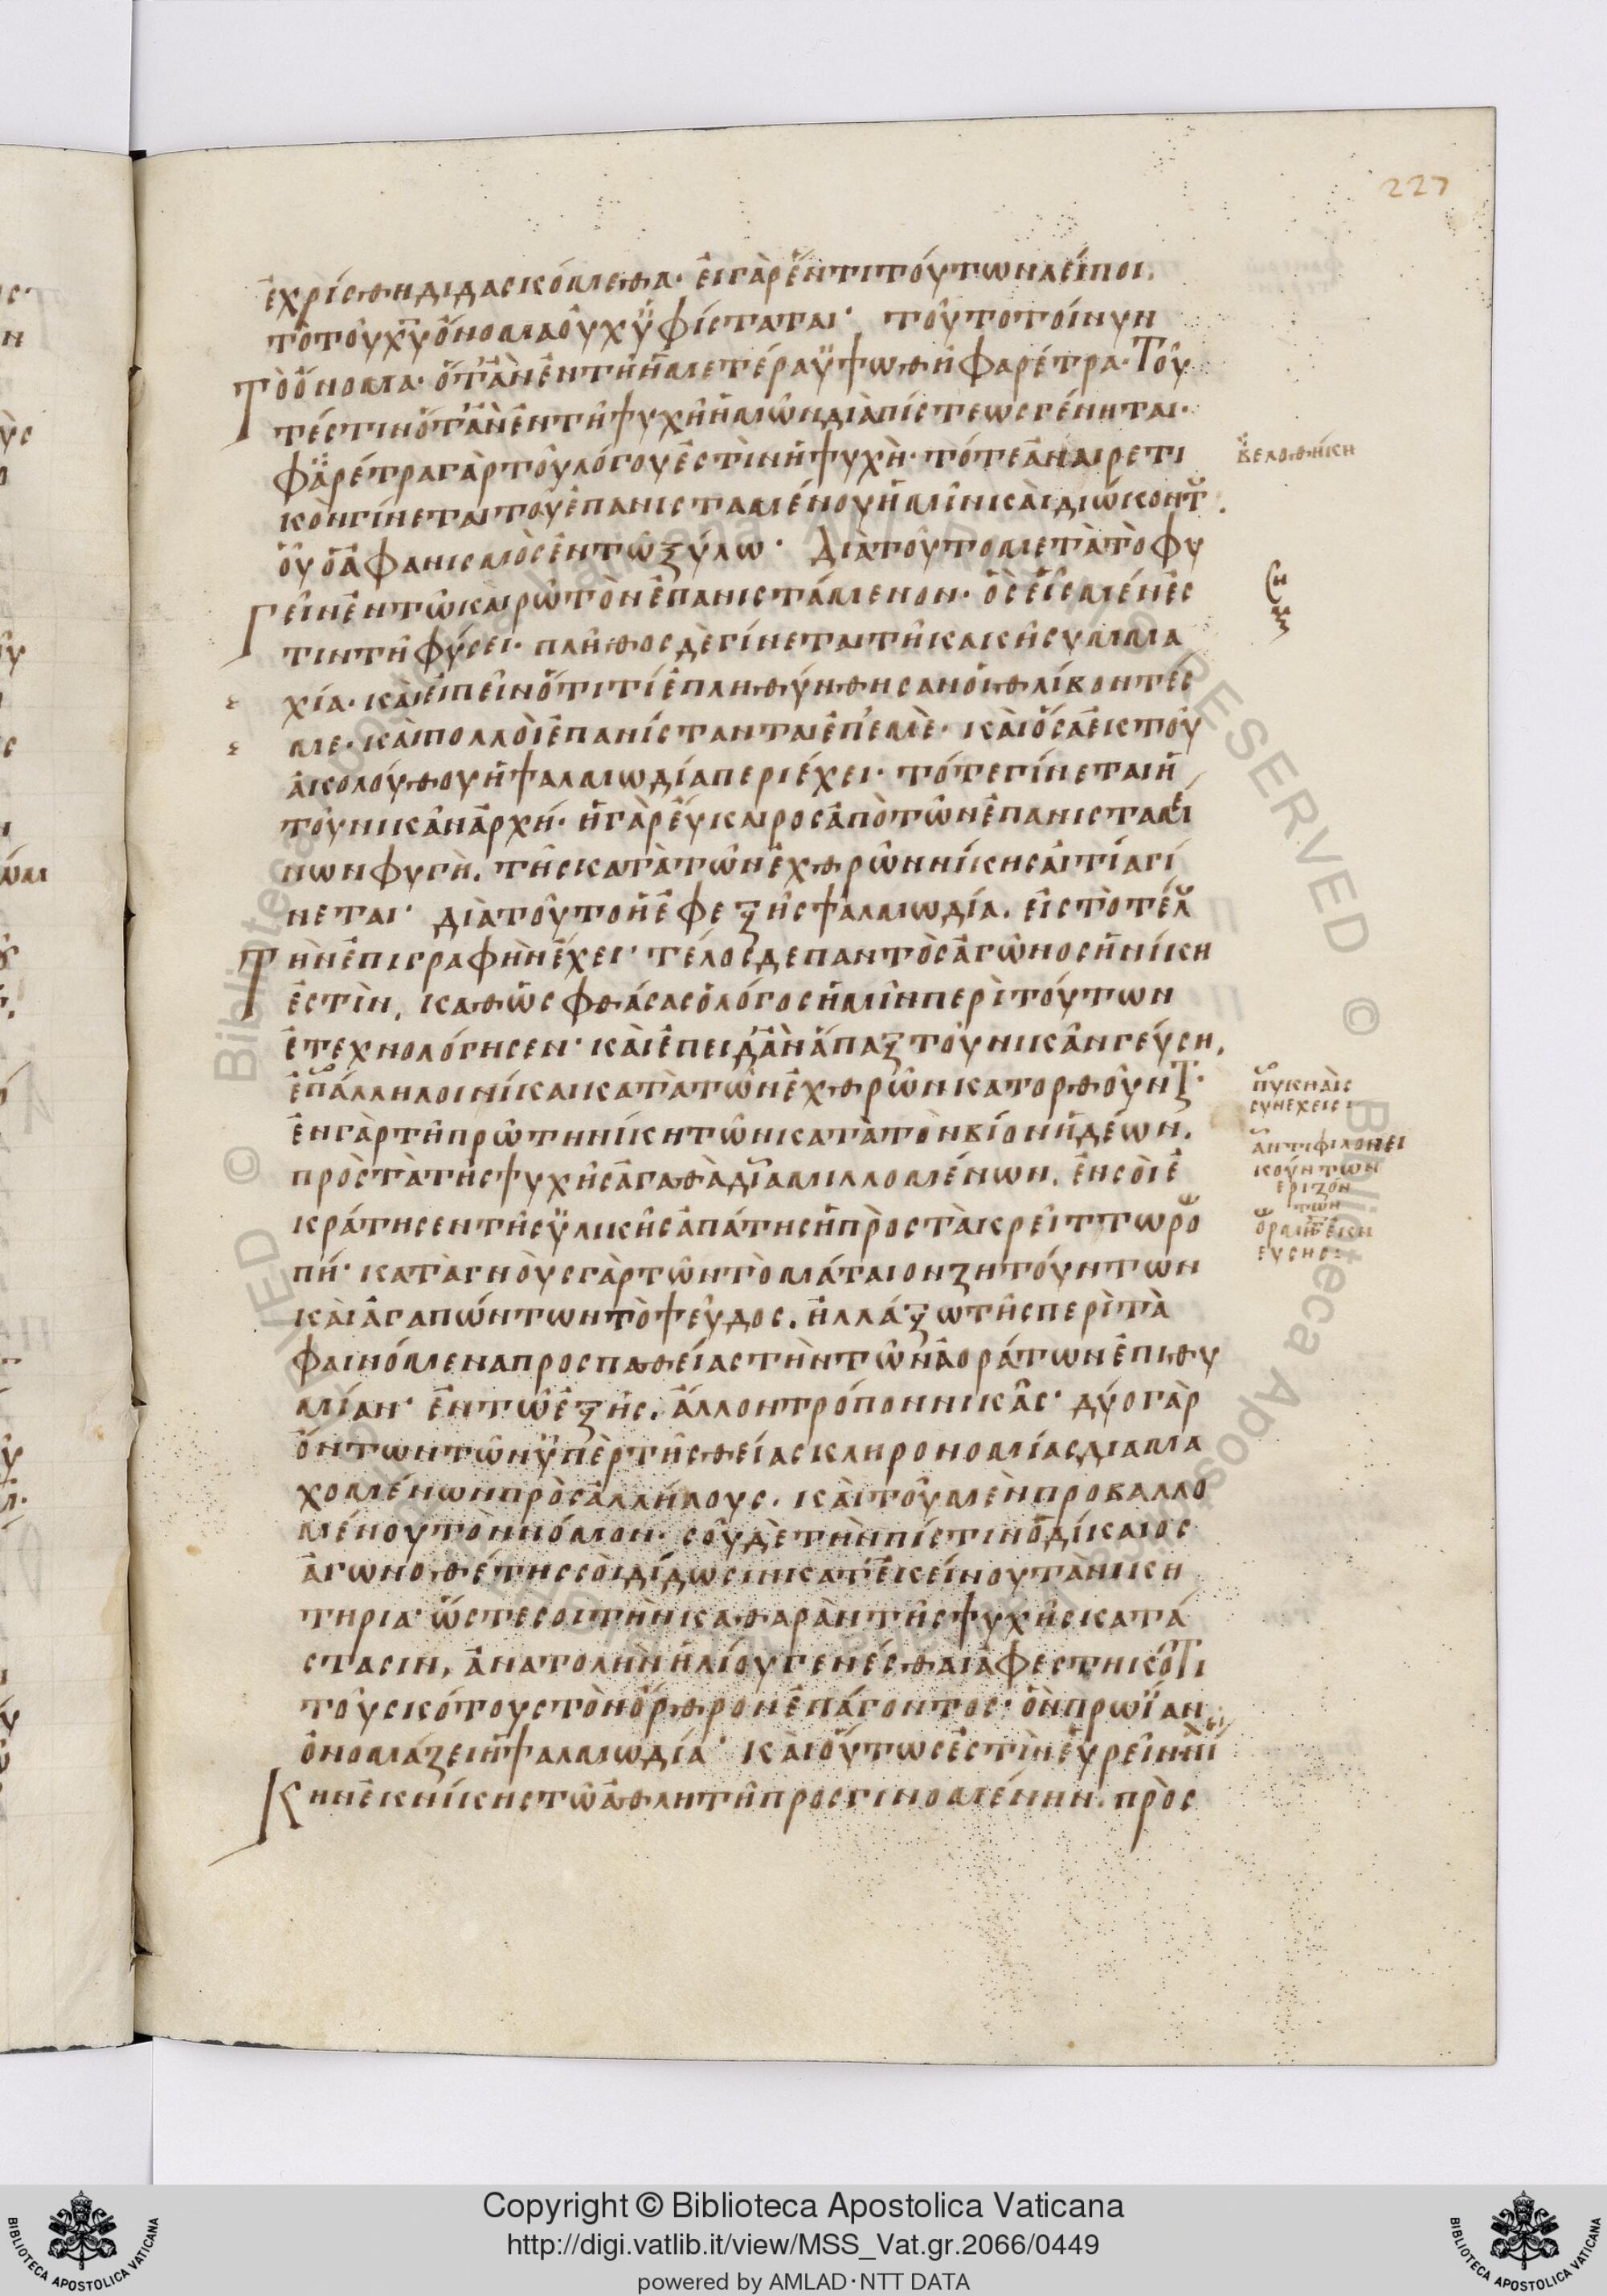 227
ἐχρίσθη διδασκόμεθα· εἰ γὰρ ἕν τι τούτων λείποι,
τὸ τοῦ χ̅υ̅ ὄνομα οὐχ ὑφίσταται· τοῦτο τοίνυν
τὸ ὄνομα· ὅταν ἐν τῇ ἡμετέρα ὑψωθῆ φαρέτρα· Του
τέστιν ὅταν ἐν τῆ ψυχῆ ἡμῶν διὰ πίστεως γένηται·
φαρέτρα γὰρ τοῦ λόγου ἐστὶν ἡ ψυχὴ· τότε ἀναιρετι
κὸν γίνεται τοῦ ἐπανισταμένου ἡμῖν καὶ διώκοντ
οὗ ὁ ἀφανισμὸς ἐν τῶ ξύλω· Διὰ τοῦτο μετὰ τὸ φυ
γεῖν ἐν τῶ καιρῶ τὸν ἐπανιστάμενον· ὃς εἷς μέν ἐσ
τιν τῆ φύσει· πλῆθος δὲ γίνεται τῆ κακῆ συμμα
χία· καὶ εἰπεῖν ὅτι τί ἐπληθύνθησαν οἱ θλίβοντές
με· καὶ πολλοὶ ἐπανίστανται ἐπ' ἐμὲ· καὶ ὅσα ἐκ τοῦ
ἀκολούθου ἡ ψαλμωδία περιέχει· τότε γίνεται ἡ
τοῦ νικᾶν ἀρχή· ἡ γὰρ εὔκαιρος ἀπὸ τῶν ἐπανισταμέ
νων φυγὴ, τῆς κατὰ τῶν ἐχθρῶν νίκης αἰτία γί
νεται· διὰ τοῦτο ἡ ἐφεξῆς ψαλμωδία, εἰς τὸ τέλ
τὴν ἐπιγραφὴν ἔχει· τέλος δε παντὸς ἀγῶνος ἡ νίκη
ἐστὶν, καθὼς φθάσας ὁ λόγος ἡμῖν περὶ τούτων
ἐτεχνολόγησεν· καὶ ἐπειδὰν ἅπαξ τοῦ νικᾶν γεύση,
ἐπάλληλοι νίκαι κατὰ τῶν ἐχθρῶν κατορθοῦντ·
ἐν γὰρ τῆ πρώτη νίκη τῶν κατὰ τὸν βίον ἡδέων,
πρὸς τὰ τῆς ψυχῆς ἀγαθὰ διαμιλλομένων, ἐν σοὶ ἐ
κράτησεν τῆς ὑλικῆς ἀπάτης ἡ πρὸς τὰ κρείττω ρο
πή· καταγνοὺς γὰρ τῶν τὸ μάταιον ζητούντων
καὶ ἀγαπώντων τὸ ψεῦδος, ἠλλάξω τῆς περὶ τὰ
φαινόμενα προσπαθείας τὴν τῶν ἀοράτων ἐπιθυ
μίαν· ἐν τῶ ἑξῆς, ἄλλον τρόπον νικᾶς· δύο γὰρ
ὄντων τῶν ὑπὲρ τῆς θείας κληρονομίας διαμα
χομένων πρὸς ἀλλήλους, καὶ τοῦ μὲν προβαλλο
μένου τὸν νόμον· σοῦ δὲ τὴν πίστιν ὁ δίκαιος
ἀγωνοθέτης σοὶ δίδωσιν κατ' ἐκείνου τὰ νικη
τηρια· ὥστε σοι τὴν καθαρὰν τῆς ψυχῆς κατά
στασιν, ἀνατολὴν ἡλίου γενέσθαι ἀφεστηκότι
τοῦ σκότους τὸν ὄρθρον ἐπάγοντος· ὃν πρωΐαν
ὀνομάζει ἡ ψαλμωδία· καὶ οὕτως ἐστὶν εὑρεῖν νί
κην ἐκ νίκης τῶ ἀθλητῆ προσγινομένην, πρὸς
βελοθήκη
πυκναὶ
συνεχεις:
ἀντιφιλονει
κούντων
εριζόν
των
Copyright © Biblioteca Apostolica Vaticana
http://digi.vatlib.it/view/MSS_Vat.gr.2066/0449
powered by AMLAD·NTT DATA